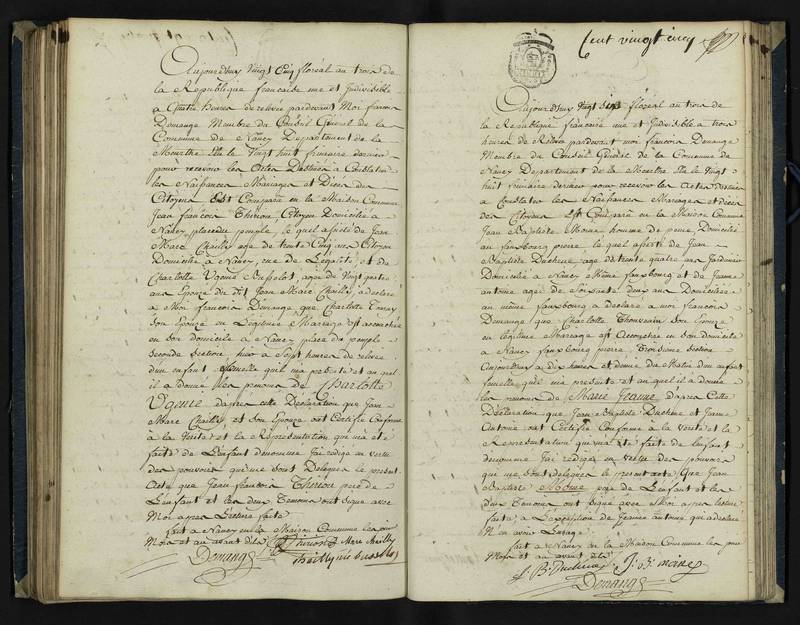 Aujourdhuy Vingt Cinq floréal an trois de
la Republique francaise une et Indivisible
a Quatre heures de relevée pardevant Moi francois
Domange Membre du Conseil General de la
Commune de Nancy Departement de la
Meurthe Elu le Vingt huit frimaire dernier
pour recevoir les Actes Destinés a Constater
les Naissances Mariages et Décés des
Citoyens Est Comparu en la Maison Commune
Jean francois Thirion, Citoyen Domicilié a
Nancy place du peuple, le quel assisté de Jean
Marc Chailly agé de trente Cinq ans Citoyen
Domicilié a Nancy, rue de L'egalité, et de
Charlotte Ugenie agée de Vingt quatre
ans Epouse du dit Jean Marc Chailly, a declaré
a Moi francois Domange que Charlotte
Son Epouse en Legitime Mariage est accouchée
en son domicile a Nancy place du peuple
Seconde Section hier a Sept heures de relevée
d'un enfant femelle qu'il m'a presenté et au quel
il a donné les prenoms de Charlotte
Ugenie d'apres cette Déclaration que Jean
Marc Chailly et Son Epouse ont Certifié Conforme
à la Verité et la Représentation qui m'a été
faite de L'enfant denommé J'ai redigé en vertu
des pouvoirs qui me sont Delegués le present
Acte que Jean francois Thirion pere de
L'enfant et les deux Temoins ont signé avec
Moi apres Lecture faite
fait a Nancy en la Maison Commune les jour
Mois et an avant dits Thirion Marc Chailly
Domange
Cent vingt cinq
Aujourdhuy Vingt Six floréal an trois de
la Republique francaise une et Indivisible a trois
heures de Relevée pardevant moi francois Domange
Membre du Conseil Général de la Commune de
Nancy Departement de la Meurthe Elu le Vingt
huit frimaire dernier pour recevoir les Actes destinés
a Constater les Naissances Mariages et décés
des Citoyens Est Comparu en la Maison Commune
Jean Baptiste Moine homme de peine, Domicilié
au fauxbourg pierre, le quel assisté de Jean
Baptiste Duchene agé de trente quatre ans Jardinier
Domicilié a Nancy Même fauxbourg et de Jeanne
antoine agée de Soixante deux ans Domiciliée
au même fauxbourg a déclaré a moi francois
Domange que Charlotte Thouvenin Son Epouse
en legitime Mariage est Accouchée en son domicile
a Nancy fauxbourg pierre Troisieme Section
Aujourdhuy a dix heures et demie du Matin d'un enfant
femelle qu'il m'a presenté et au quel il a donné
les prenoms de Marie Jeanne d'apres Cette
Déclaration que Jean Baptiste Duchene et Jeanne
Antoine ont Certifié Conforme à la verité et la
Representation qui m'a été faite de l'enfant
denommé J'ai redigé en vertu des pouvoirs
qui me sont delegués le present acte, Que Jean
Baptiste Moine pere de L'enfant et les
deux Temoins ont signé avec Moi apres lecture
faite, a L'exception de Jeanne antoine qui a declaré
N'en avoir L'usage
fait a Nancy en la Maison Commune les jour
Mois et an avant dits
J. B. Duchene J. B. moine
Domange